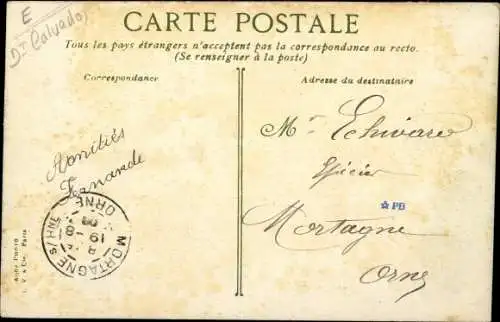 E
Dt Calvados
CARTE POSTALE
Tous les pays étrangers n'acceptent pas la correspondance au recto.
(Se renseigner à la poste)
Correspondance
Adresse du destinataire
Mr Echivard
Epicier
Mortagne
Orne
Amitiés
PB
MORTAGNE
ORNE